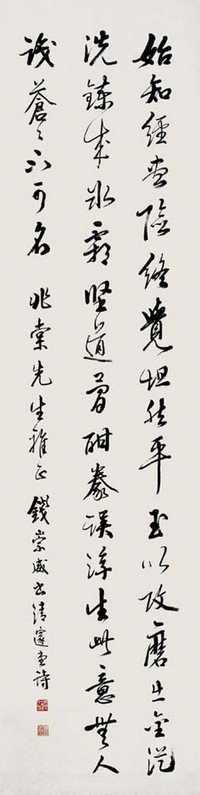 始知經盡險終覺坦然平玉以攻磨出金從
洗鍊成冰霜堅道骨酣豢誤浮生此意無人
識蒼〻不可名 兆棠先生雅正 錢崇威書清邃堂詩